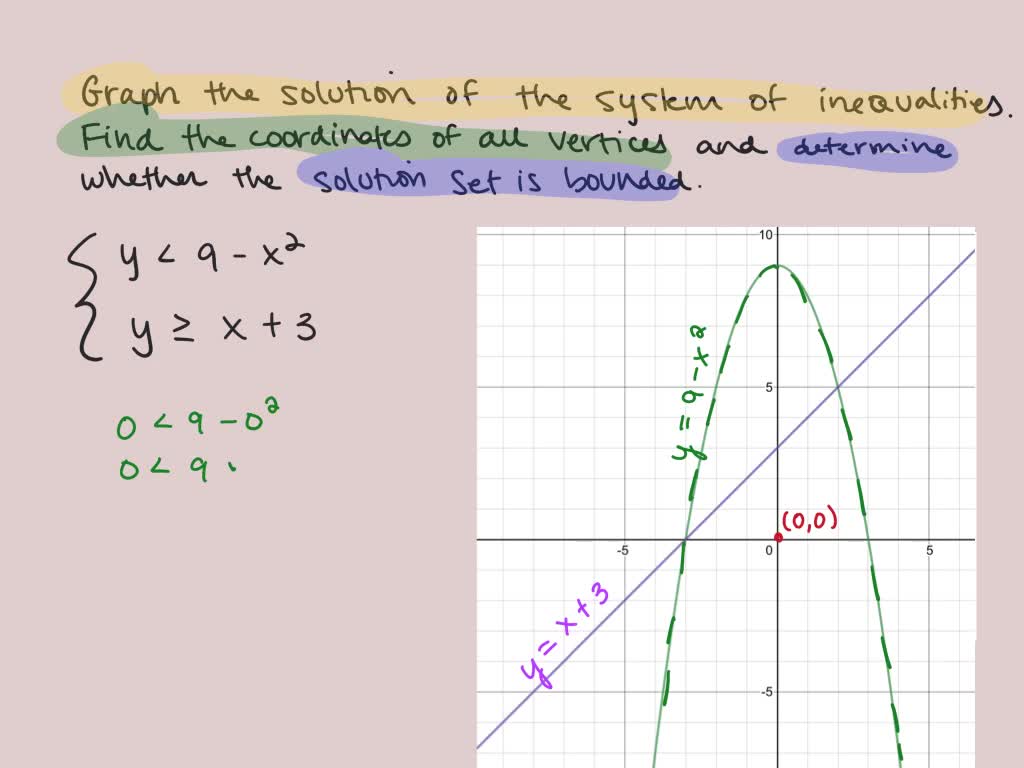 Graph the solution of the system of inequalities.
Find the coordinates of all vertices and determine
whether the solution set is bounded.
y < 9 - x²
y ≥ x + 3
0 < 9 - 0²
0 < 9 .
10
y = 9 - x²
5
(0,0)
-5
0
5
y = x + 3
-5